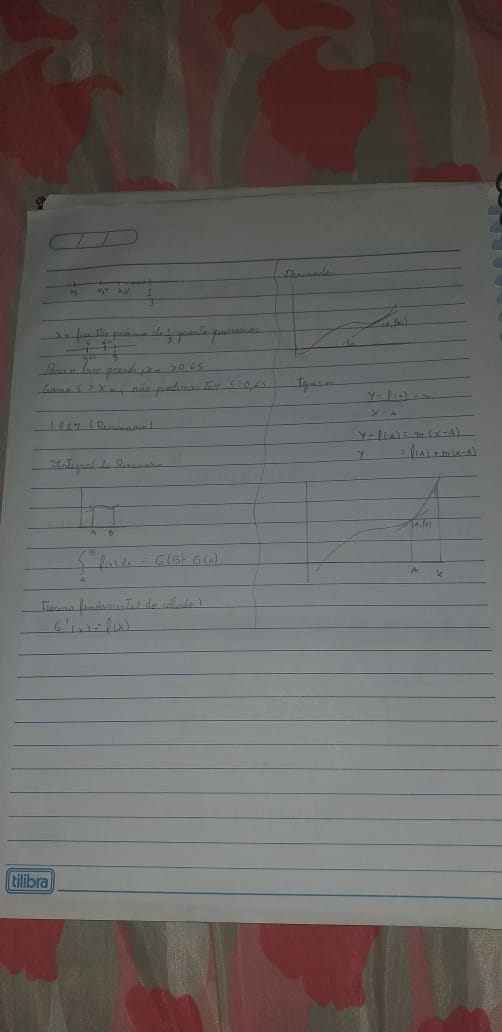 1
3
xn fica tão próximo de 1/3 quanto queiramos
S
0,65
Para n bem grande, xn > 0,65
Como S > Xn, não podemos ter S = 0,65
1827 (Riemann)
Integral de Riemann
A B
∫ f(x) dx = G(B) - G(A)
B
A
Teorema fundamental do cálculo
G'(x) = f(x)
Derivadas
Tgα = m
Y - f(A) = m
X - A
Y - f(A) = m(x-A)
Y = f(A) + m(x-A)
A X
tilibra